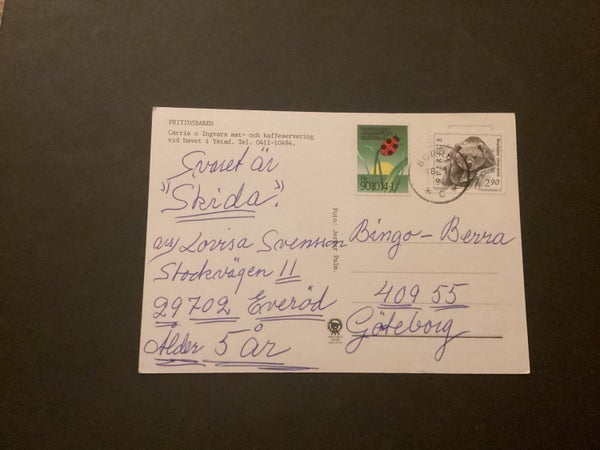 FRITIDSBAREN
Carrie o Ingvars mat- och kaffeservering
vid havet i Ystad. Tel. 0411-10494.
Svaret är
"Skida".
Lovisa Svensson
Stockvägen 11
29702 Everöd
Ålder 5 år
Foto: Palm.
901014-1
SVERIGE
2.90
Bingo-Berra
409 55
Göteborg